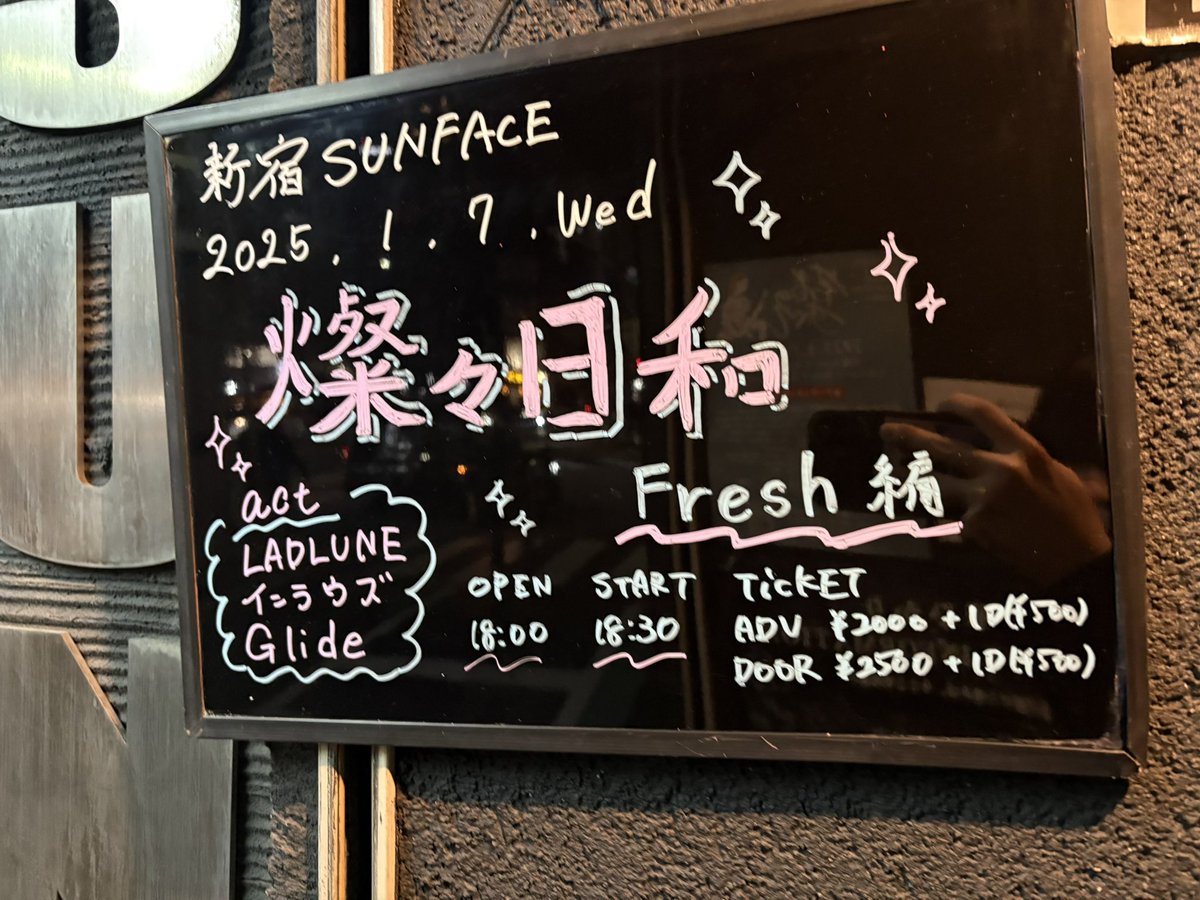 新宿 SUNFACE
2025.1.7.Wed
燦々日和
Fresh 編
act
LADLUNE
イニラウズ
Glide
OPEN
18:00
START
18:30
TICKET
ADV ¥2000 + 1D(¥500)
DOOR ¥2500 + 1D(¥500)